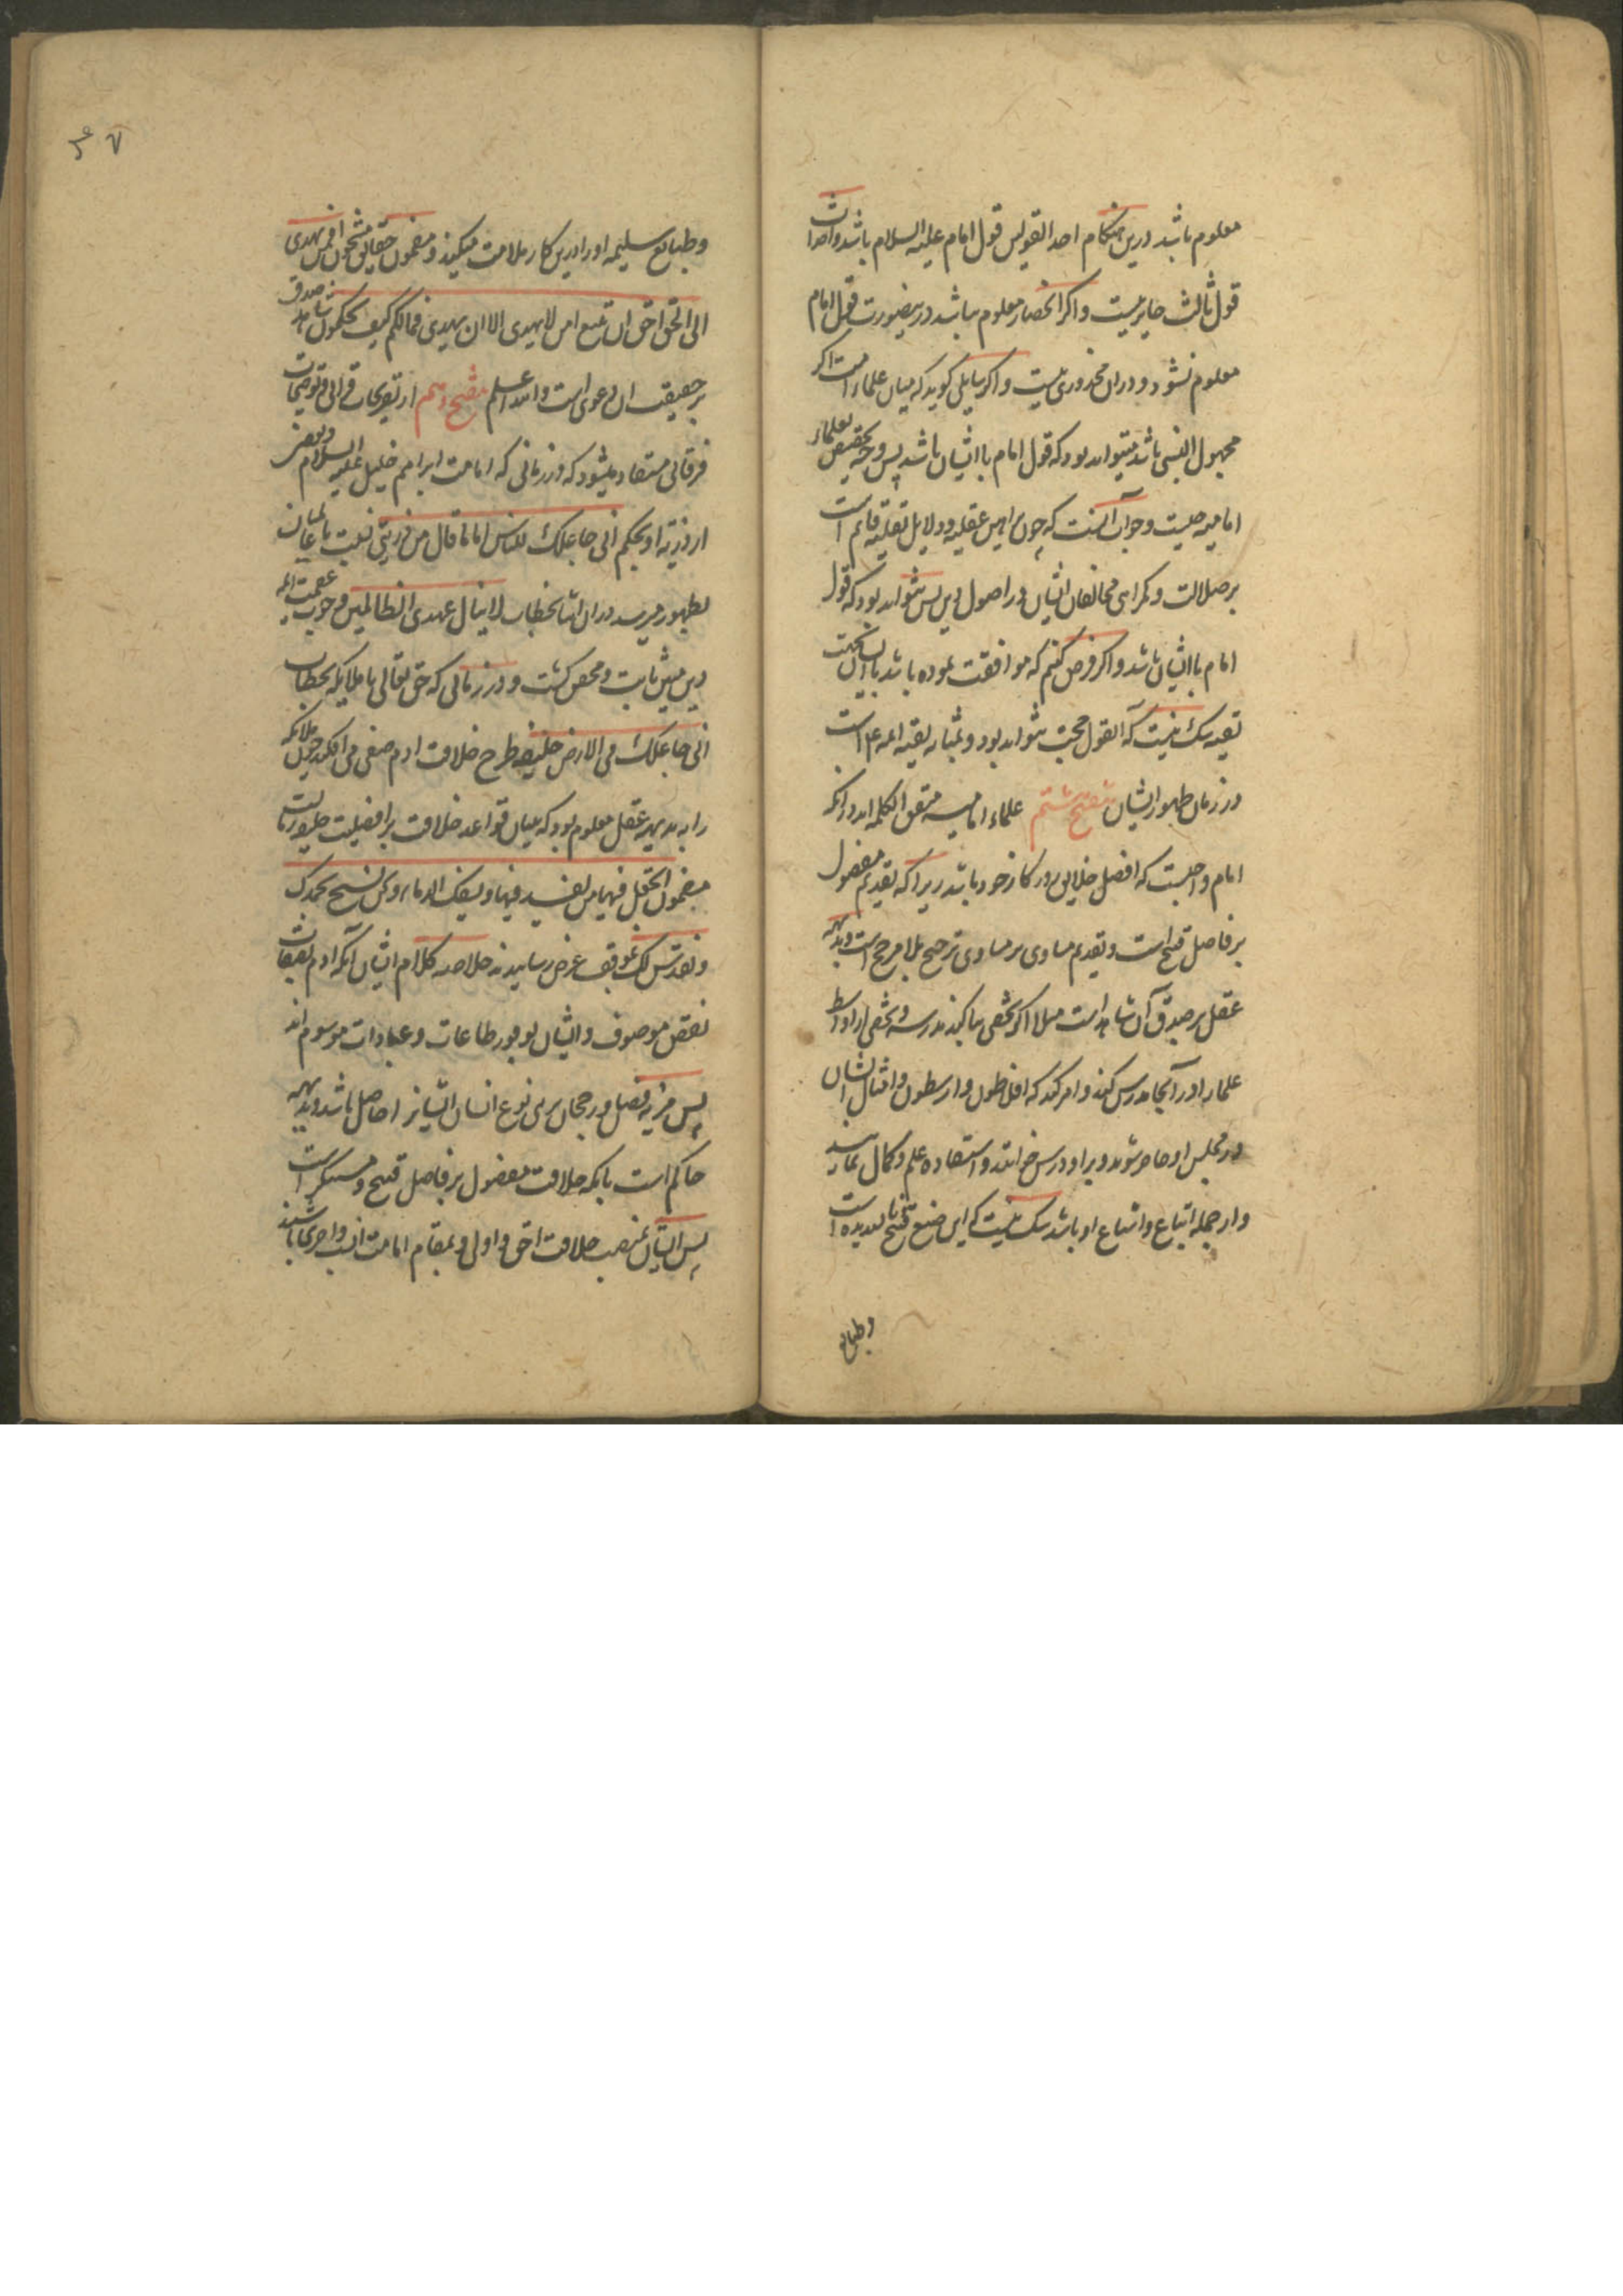 معلوم باشد درین هنگام احد القولین قول امام علیه السلام باشد و احداث
قول ثالث جایز نیست و اگر انحصار معلوم نباشد درینصورت قول امام
معلوم نشود و در ان محذوری نیست و اگر سایلی گوید که میان علماء امت اگر
مجهول النسبی باشد میتواند بود که قول امام با ایشان باشد پس وجه تخصیص بعلماء
امامیه چیست و جواب آنست که چون براهین عقلیه و دلایل نقلیه قایم است
بر ضلالت و گمراهی مخالفان ایشان در اصول دین پس نتواند بود که قول
امام با ایشان باشد و اگر فرض کنیم که موافقت نموده باشد با ایشان بجهت
تقیه شک نیست که آن قول حجت نتواند بود و بمثابه تقیه ائمه است
در زمان ظهور ایشان تنقیح هشتم علماء امامیه متفق الکلمه اند در انکه
امام واجبست که افضل خلایق روزگار خود باشد زیرا که تقدیم مفضول
بر فاضل قبیح است و تقدیم مساوی بر مساوی ترجیح بلا مرجح است و بدیهه
عقل بر صدق آن شاهد است مثلا اگر شخصی بنا کند مدرسه و شخصی را از اواسط
علما در آنجا مدرس کند و امر کند که افلاطون و ارسطون و امثال ایشان
در مجلس او حاضر شوند و بر او درس خوانند و استفاده علم و کمال نمایند
و از جمله اتباع و اشیاع او باشند شک نیست که این صنیع قبیح ناپسندیده است
وطبایع
۷
و طبایع سلیمه او را درین کار ملامت میکنند و مضمون حقایق مشحون افمن یهدی
الی الحق احق ان یتبع امن لا یهدی الا ان یهدی فما لکم کیف تحکمون شاهد صدق
بر حقیقت ان دعوی است والله اعلم تنقیح نهم از تصریحات قرانی و توضیحات
فرقانی مستفاد میشود که در زمانی که امامت ابراهیم خلیل علیه السلام و بعضی
از ذریه او بحکم انی جاعلک للناس اماما قال من ذریتی
بظهور میرسد در ان اثنا بخطاب لا ینال عهدی الظالمین وجوب عصمت ائمه
دین مبین ثابت و محض گشت و در زمانی که حق تعالی با ملایکه بخطاب
انی جاعلک فی الارض خلیفه طرح خلافت ادم صفی می افکند چون ملائکه
را به بدیهه عقل معلوم بود که بنیان قواعد خلافت بر افضلیت خلیفه است
مضمون اتجعل فیها من یفسد فیها و یسفک الدماء و نحن نسبح بحمدک
و نقدس لک بموقف عرض رسانیدند خلاصه کلام ایشان آنکه ادم بصفات
نقص موصوف و ایشان بوفور طاعات و عبادات موسوم اند
پس مزیه فضل و رجحان بر بنی نوع انسان ایشانرا حاصل باشد و بدیهه
حاکم است بانکه خلافت مفضول بر فاضل قبیح و مستنکر است
پس ایشان بمنصب خلافت احق و اولی و بمقام امامت انسب و احری باشند